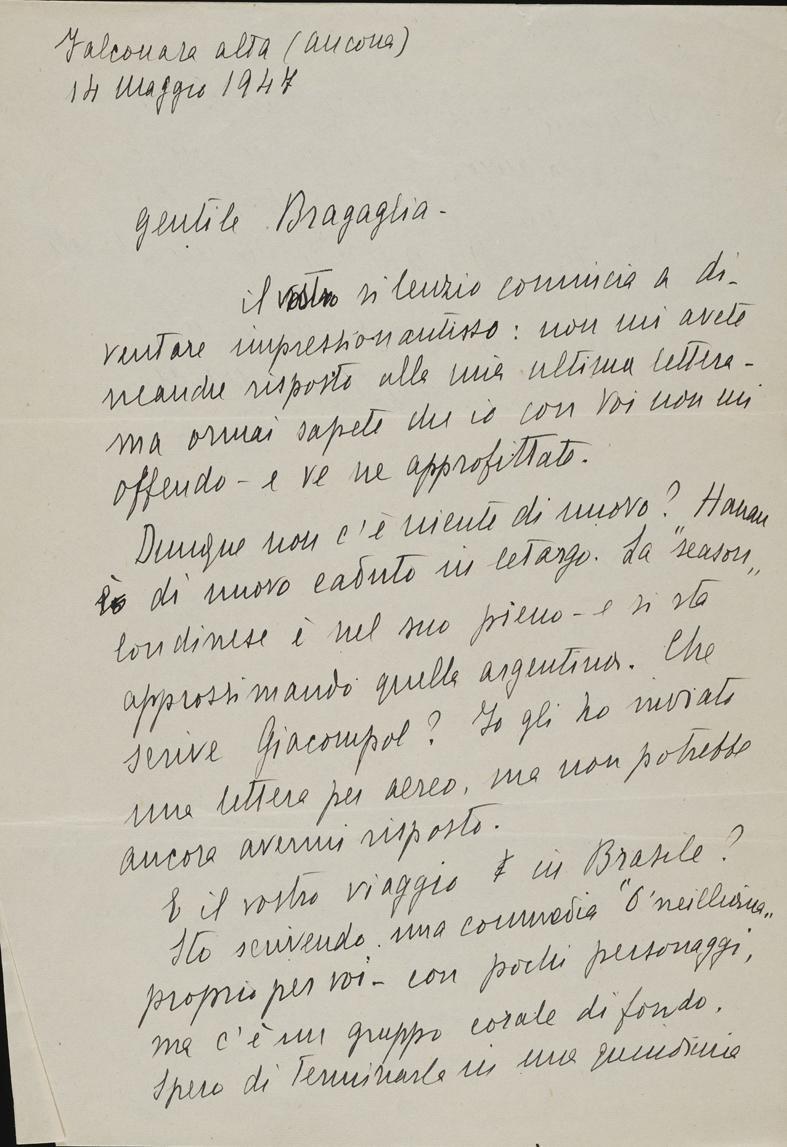 Falconara alta (Ancona)
14 Maggio 1947
Gentile Bragaglia -
il vostro silenzio comincia a di-
ventare impressionantisso: non mi avete
neanche risposto alla mia ultima lettera -
ma ormai sapete che io con Voi non mi
offendo - e ve ne approfittate.
Dunque non c'è niente di nuovo? Hanau
è di nuovo caduto in letargo. La "season"
londinese è nel suo pieno - e si sta
approssimando quella argentina. Che
scrive Giacompol? Io gli ho inviato
una lettera per aereo, ma non potrebbe
ancora avermi risposto.
E il vostro viaggio in Brasile?
Sto scrivendo una commedia "O'neilliana"
proprio per voi - con pochi personaggi,
ma c'è un gruppo corale di fondo.
Spero di terminarla in una quindicina